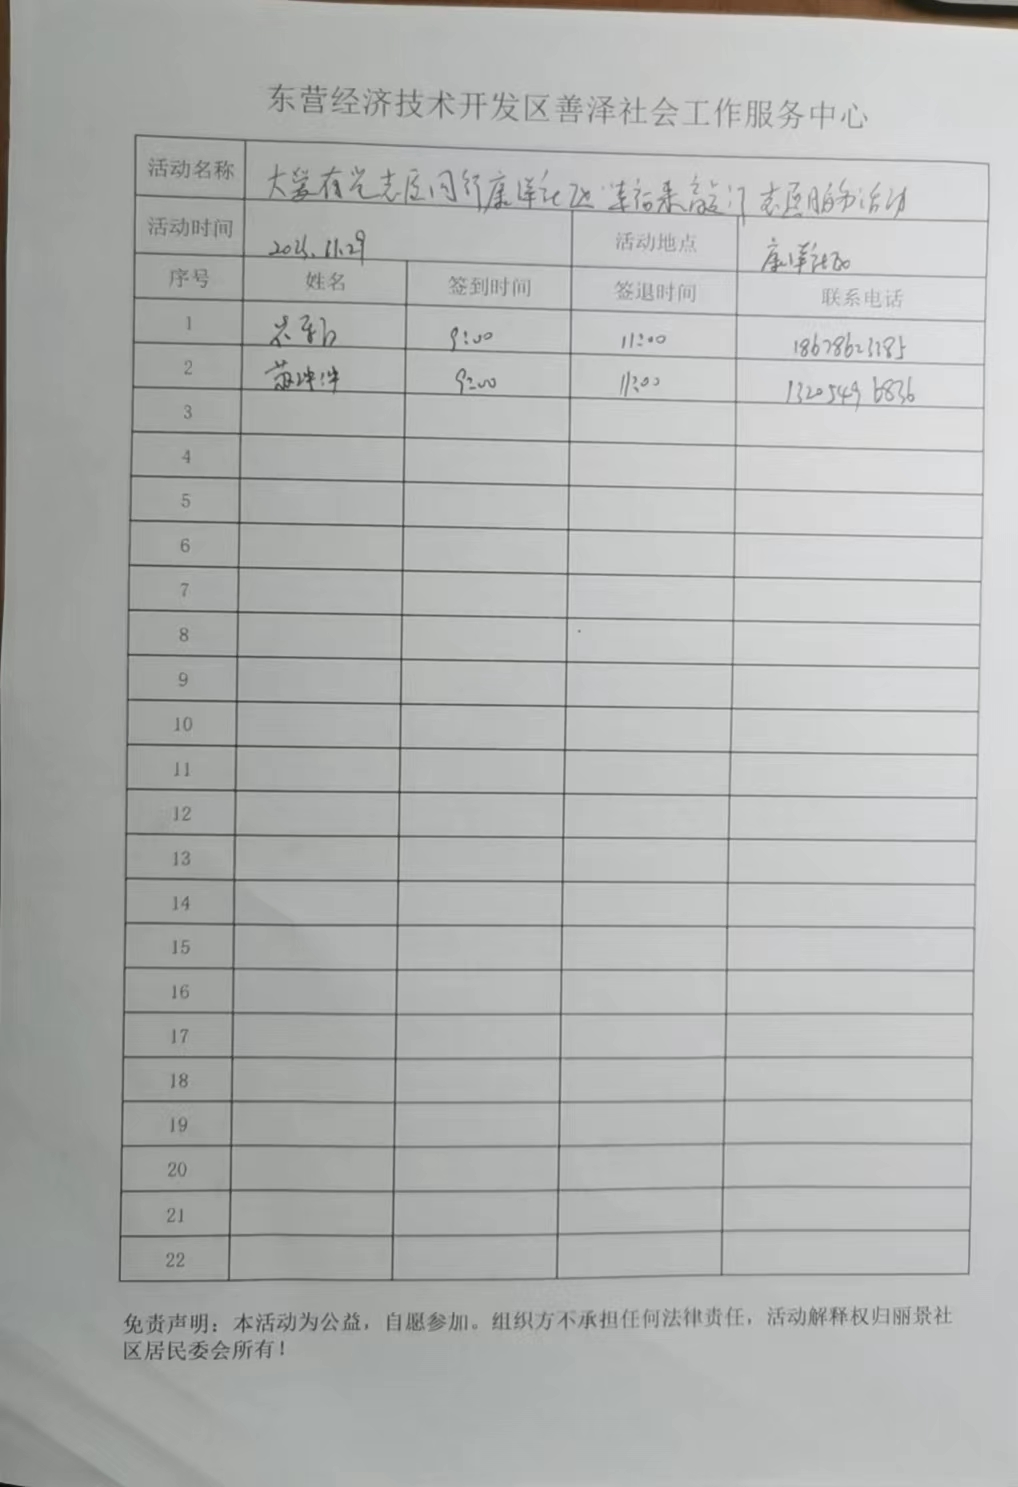 东营经济技术开发区善泽社会工作服务中心
活动名称 大爱有光志愿同行康洋社区 幸福来敲门 志愿服务活动
活动时间 11.29 活动地点 康洋社区
序号 姓名 签到时间 签退时间 联系电话
1 9:00 11:00
2 9:00 11:00 13205496836
3
4
5
6
7
8
9
10
11
12
13
14
15
16
17
18
19
20
21
22
免责声明：本活动为公益，自愿参加。组织方不承担任何法律责任，活动解释权归丽景社
区居民委会所有！